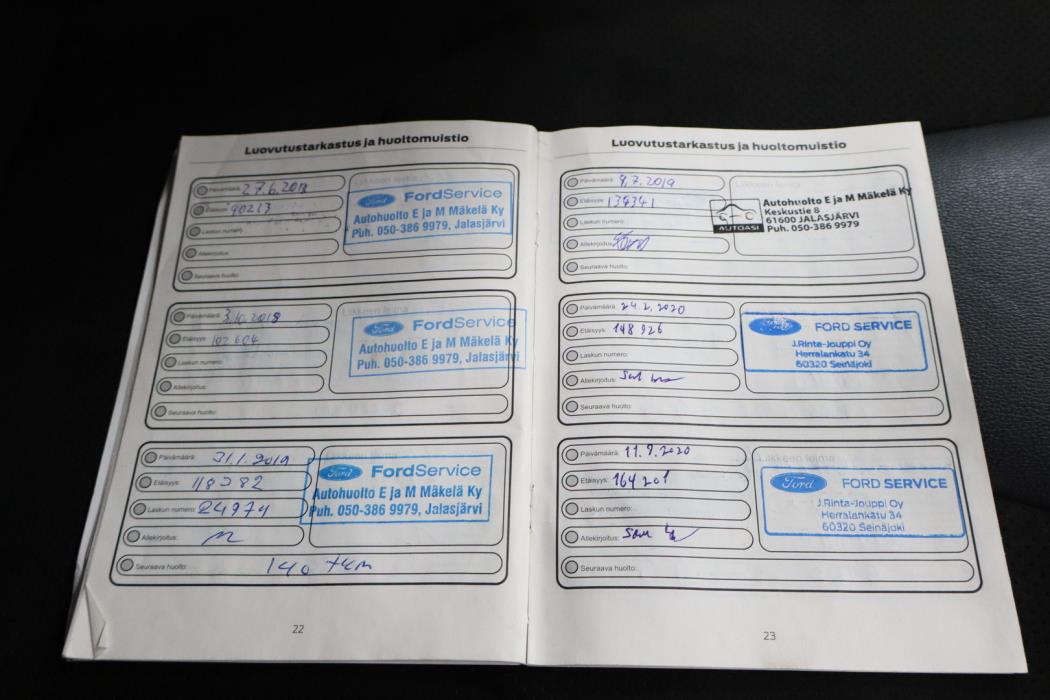 Luovutustarkastus ja huoltomuistio
Päivämäärä: 27.6.2018
Etäisyys: 90213
Laskun numero:
Allekirjoitus:
Seuraava huolto:
Liikkeen leima
Ford FordService
Autohuolto E ja M Mäkelä Ky
Puh. 050-386 9979, Jalasjärvi
Päivämäärä: 3.10.2018
Etäisyys: 102604
Laskun numero:
Allekirjoitus:
Seuraava huolto:
Liikkeen leima
Ford FordService
Autohuolto E ja M Mäkelä Ky
Puh. 050-386 9979, Jalasjärvi
Päivämäärä: 31.1.2019
Etäisyys: 118282
Laskun numero: 24974
Allekirjoitus:
Seuraava huolto: 140 tkm
Liikkeen leima
Ford FordService
Autohuolto E ja M Mäkelä Ky
Puh. 050-386 9979, Jalasjärvi
22
Luovutustarkastus ja huoltomuistio
Päivämäärä: 9.7.2019
Etäisyys: 134341
Laskun numero:
Allekirjoitus:
Seuraava huolto:
Liikkeen leima
AUTOASI
Autohuolto E ja M Mäkelä Ky
Keskustie 8
61600 JALASJÄRVI
Puh. 050-386 9979
Päivämäärä: 24.2.2020
Etäisyys: 148926
Laskun numero:
Allekirjoitus:
Seuraava huolto:
Ford FORD SERVICE
J.Rinta-Jouppi Oy
Herralankatu 34
60320 Seinäjoki
Päivämäärä: 11.9.2020
Etäisyys: 164201
Laskun numero:
Allekirjoitus:
Seuraava huolto:
Liikkeen leima
Ford FORD SERVICE
J.Rinta-Jouppi Oy
Herralankatu 34
60320 Seinäjoki
23